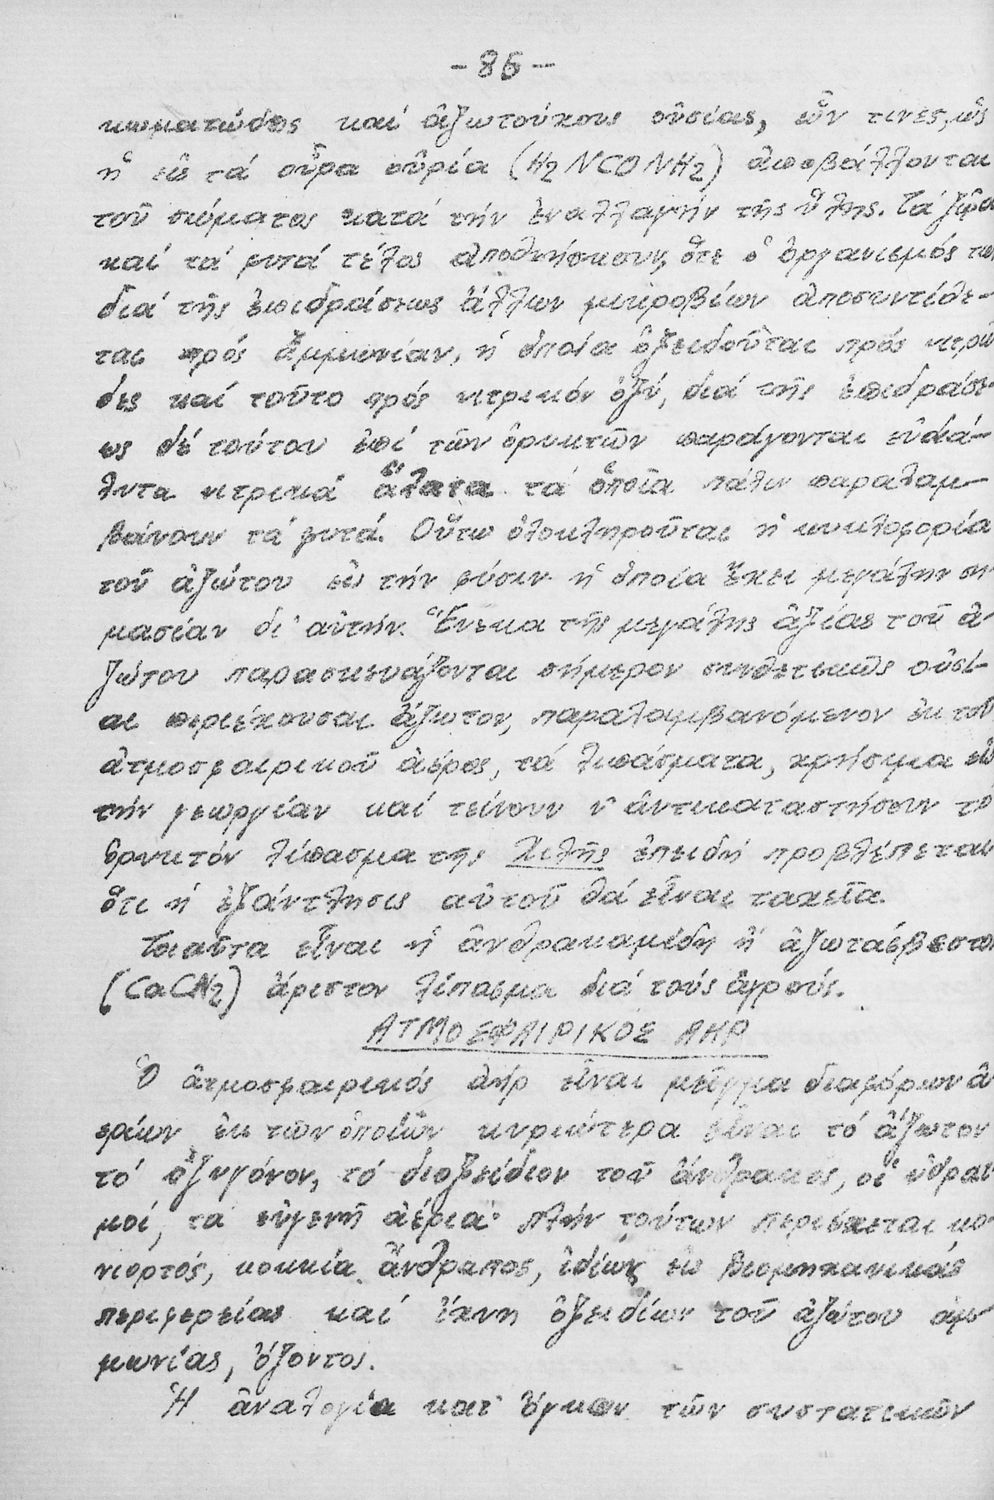 - 86 -
κωματώδεις καί ἀζωτούχους οὐσίας, ὧν τινες, ὡς
ἡ εἰς τά οὖρα οὐρία (H2NCONH2) ἀποβάλλονται
τοῦ σώματος κατά τήν ἐναλλαγήν τῆς ὕλης. Τά ζῶα
καί τά φυτά τέλος ἀποθνήσκουν, ὅτε ὁ ὀργανισμός των
διά τῆς ἐπιδράσεως ἄλλων μικροβίων ἀποσυντίθε-
ται πρός ἀμμωνίαν, ἡ ὁποία ὀξειδοῦται πρός νιτρῶ
δες καί τοῦτο πρός νιτρικόν ὀξύ, διά τῆς ἐπιδράσε-
ως δέ τούτου ἐπί τῶν ὀρυκτῶν παράγονται εὐδιά-
λυτα νιτρικά ἅλατα τά ὁποῖα πάλιν παραλαμ-
βάνουν τά φυτά. Οὕτω ὁλοκληροῦται ἡ κυκλοφορία
τοῦ ἀζώτου εἰς τήν φύσιν ἡ ὁποία ἔχει μεγάλην ση
μασίαν δι' αὐτήν. Ἕνεκα τῆς μεγάλης ἀξίας τοῦ ἀ-
ζώτου παρασκευάζονται σήμερον συνθετικῶς οὐσί-
αι περιέχουσαι ἄζωτον, παραλαμβανόμενον ἐκ τοῦ
ἀτμοσφαιρικοῦ ἀέρος, τά λιπάσματα, χρήσιμα εἰς
τήν γεωργίαν καί τείνουν ν' ἀντικαταστήσουν τό
ὀρυκτόν λίπασμα τῆς Χιλῆς ἐπειδή προβλέπεται
ὅτι ἡ ἐξάντλησις αὐτοῦ θά εἶναι ταχεῖα.
Τοιαῦτα εἶναι ἡ ἀνθρακαμίδη ἤ ἀζωτάσβεστος
(CaCN2) ἄριστον λίπασμα διά τούς ἀγρούς.
ΑΤΜΟΣΦΑΙΡΙΚΟΣ ΑΗΡ
Ὁ ἀτμοσφαιρικός ἀήρ εἶναι μεῖγμα διαφόρων ἀ
ερίων ἐκ τῶν ὁποίων κυριώτερα εἶναι τό ἄζωτον
τό ὀξυγόνον, τό διοξείδιον τοῦ ἄνθρακος, οἱ ὑδρατ
μοί, τα εὐγενῆ ἀέρια· πλήν τούτων περιέχεται κο-
νιορτός, κοκκία ἄνθρακος, ἰδίως εἰς βιομηχανικάς
περιφερείας καί ἴχνη ὀξειδίων τοῦ ἀζώτου ἀμ-
μωνίας, ὄζοντος.
Ἡ ἀναλογία κατ' ὄγκον τῶν συστατικῶν